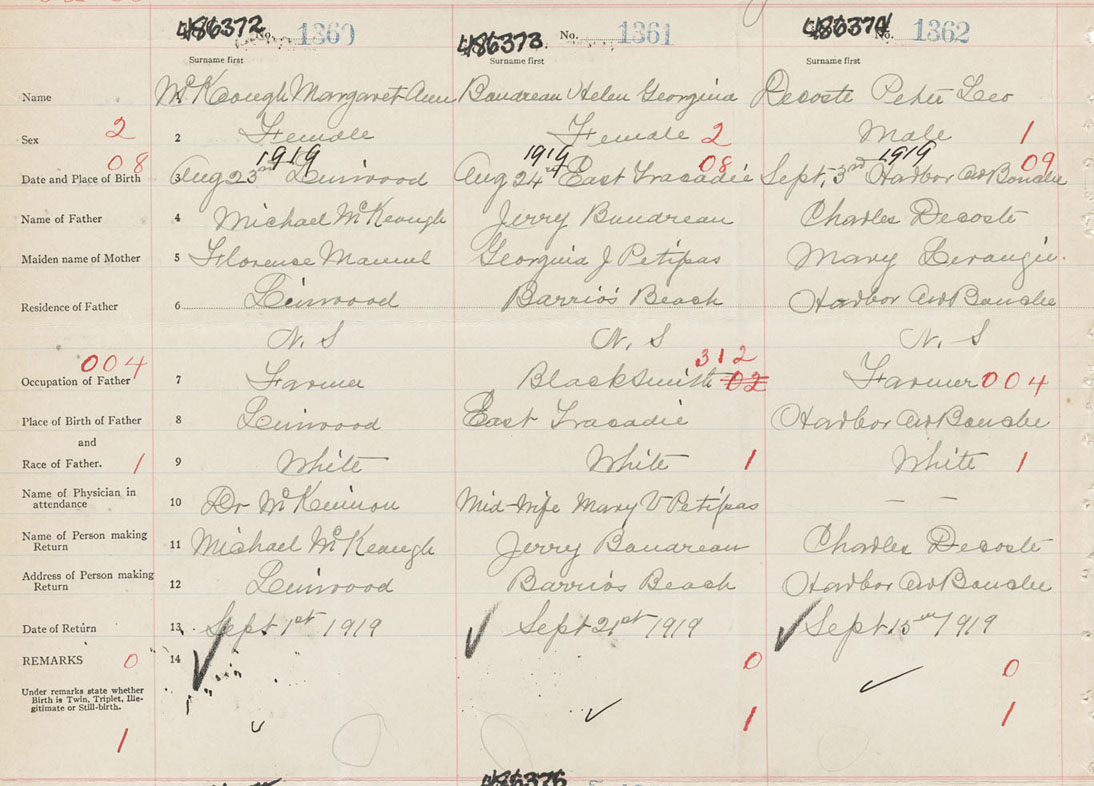 486372 No. 1360 486373 No. 1361 486374 No. 1362
Surname first Surname first Surname first
Name 1 McKeough Margaret Ann Boudreau Helen Georgina Decoste Peter Leo
Sex 2 2 Female Female 2 Male 1
08 1919 1919 08 1919 09
Date and Place of Birth 3 Aug 23rd Linwood Aug 24th East Tracadie Sept, 3rd Harbor Au Bouche
Name of Father 4 Michael McKeough Jerry Boudreau Charles Decoste
Maiden name of Mother 5 Florence Manuel Georgina J Petipas Mary
Residence of Father 6 Linwood Barrios Beach Harbor Au Bouche
N. S N. S N. S
004 312
Occupation of Father 7 Farmer Blacksmith 02 Farmer 004
Place of Birth of Father 8 Linwood East Tracadie Harbor Au Bouche
and
Race of Father. 1 9 White White 1 White 1
Name of Physician in
attendance 10 Dr McKinnon Mid-Wife Mary V Petipas — —
Name of Person making
Return 11 Michael McKeough Jerry Boudreau Charles Decoste
Address of Person making
Return 12 Linwood Barrios Beach Harbor Au Bouche
Date of Return 13 Sept 1st 1919 Sept 21st 1919 Sept 15th 1919
REMARKS 0 14 0 0
Under remarks state whether
Birth is Twin, Triplet, Ille-
gitimate or Still-birth.
1 1 1
486376